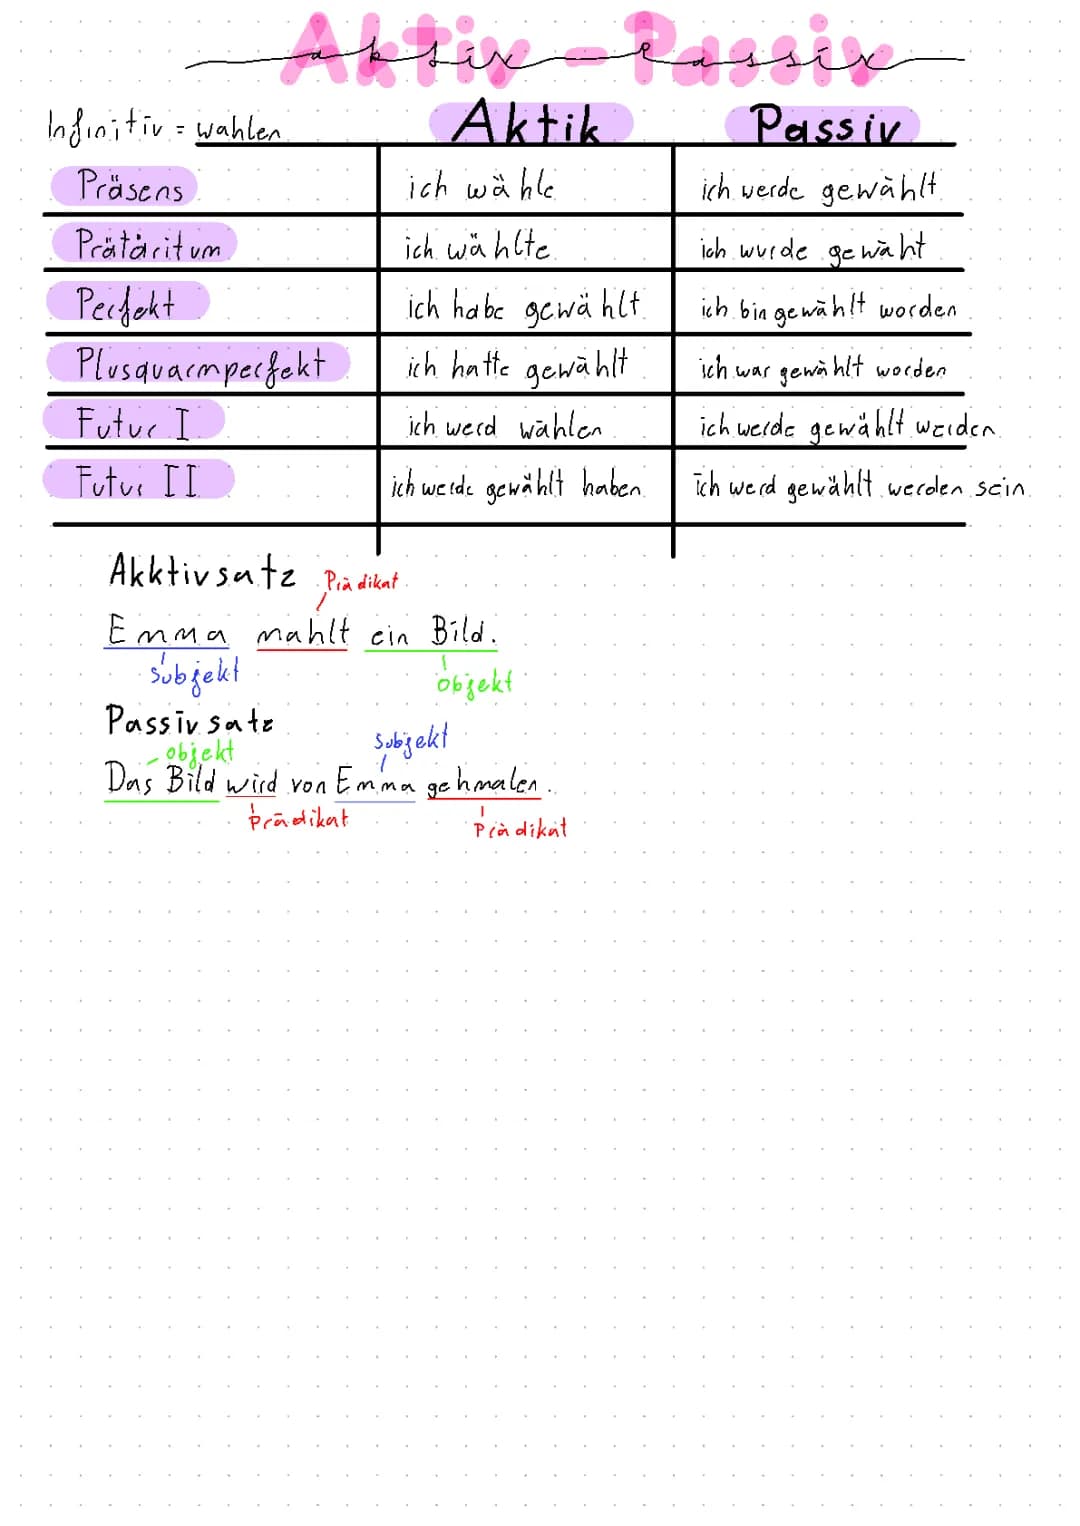 Aktiv - Passiv
aktiv - Passiv
Infinitiv = wahlen Aktik Passiv
Präsens ich wähle ich werde gewählt
Prätäritum ich wählte ich wurde gewäht
Perfekt ich habe gewählt ich bin gewählt worden
Plusquarmperfekt ich hatte gewählt ich war gewählt worden
Futur I ich werd wählen ich werde gewählt werden
Futur II ich werde gewählt haben ich werd gewählt werden sein
Akktivsatz Prädikat
Emma mahlt ein Bild.
Subjekt Objekt
Passivsatz
Objekt Subjekt
Das Bild wird von Emma gehmalen.
Prädikat Prädikat